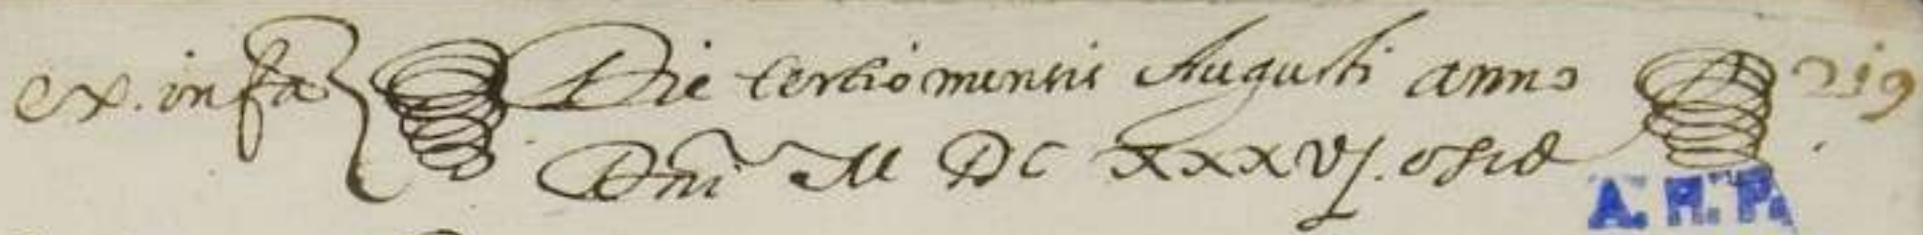 ex. infa Die tertio mensis Augusti anno 219
Dni M DC XXXVJ. osce
A. H. P.